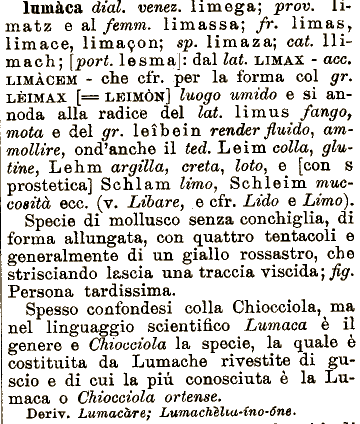 lumàca dial. venez. limega; prov. li-
matz e al femm. limassa; fr. limas,
limace, limaçon; sp. limaza; cat. lli-
mach; [port. lesma]: dal lat. LIMAX - acc.
LIMÀCEM - che cfr. per la forma col gr.
LÈIMAX [= LEIMÒN] luogo umido e si an-
noda alla radice del lat. limus fango,
mota e del gr. leîbein render fluido, am-
mollire, ond'anche il ted. Leim colla, glu-
tine, Lehm argilla, creta, loto, e [con s
prostetica] Schlam limo, Schleim muc-
cosità ecc. (v. Libare, e cfr. Lido e Limo).
Specie di mollusco senza conchiglia, di
forma allungata, con quattro tentacoli e
generalmente di un giallo rossastro, che
strisciando lascia una traccia viscida; fig.
Persona tardissima.
Spesso confondesi colla Chiocciola, ma
nel linguaggio scientifico Lumaca è il
genere e Chiocciola la specie, la quale è
costituita da Lumache rivestite di gu-
scio e di cui la più conosciuta è la Lu-
maca o Chiocciola ortense.
Deriv. Lumacàre; Lumachèlla-íno-óne.